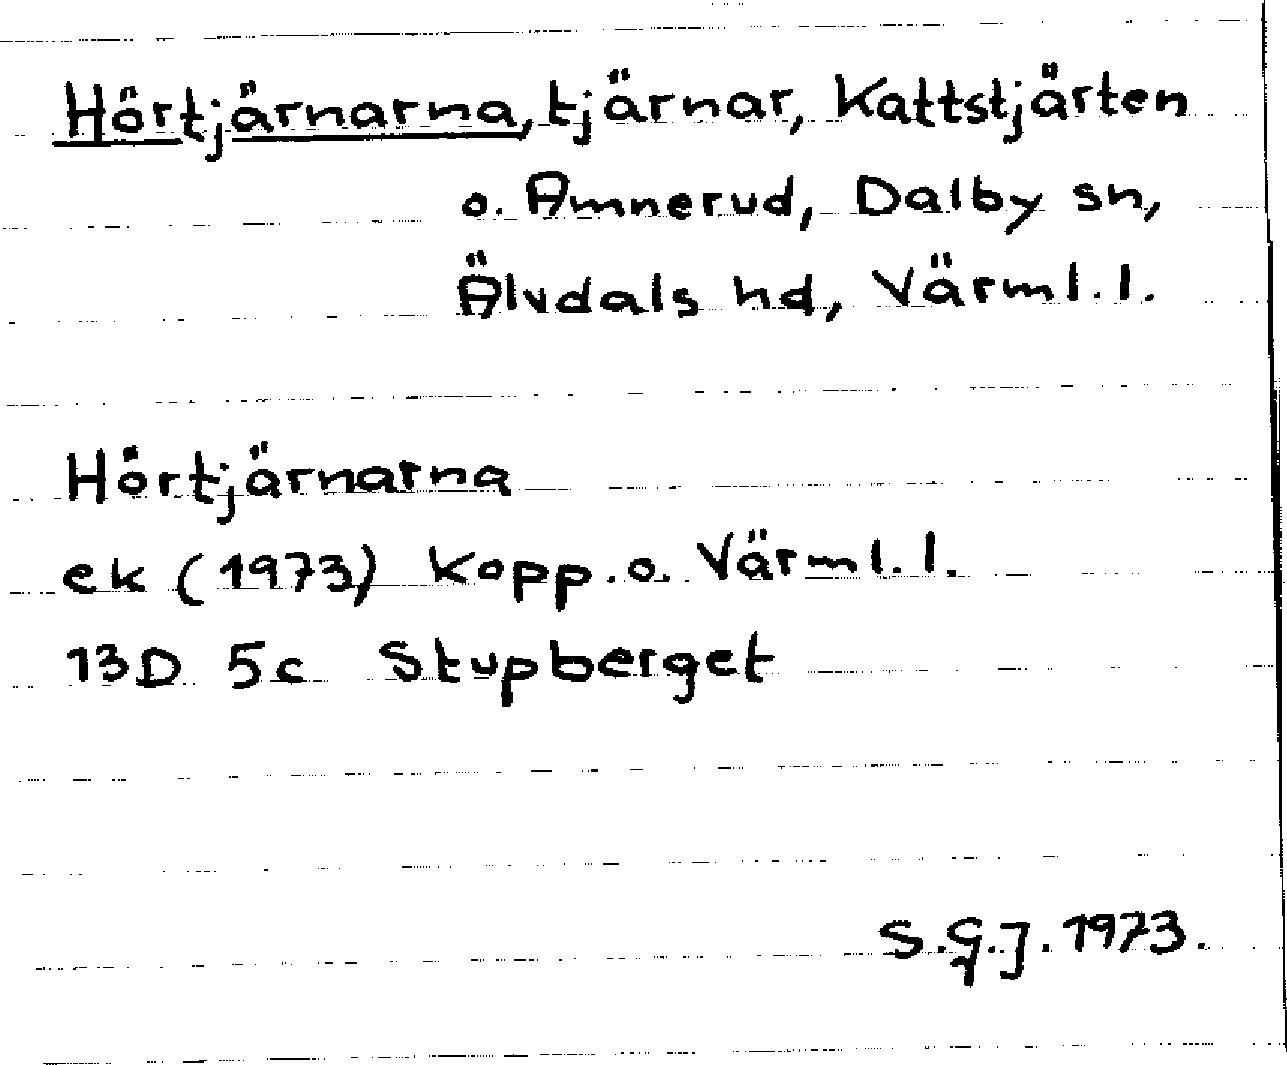 Hörtjärnarna, tjärnar, Kattstjärten
o. Amnerud, Dalby sn,
Älvdals hd, Värml. l.
Hörtjärnarna
ek (1973) Kopp. o. Värml. l.
13D 5c Stupberget
S.G.J. 1973.